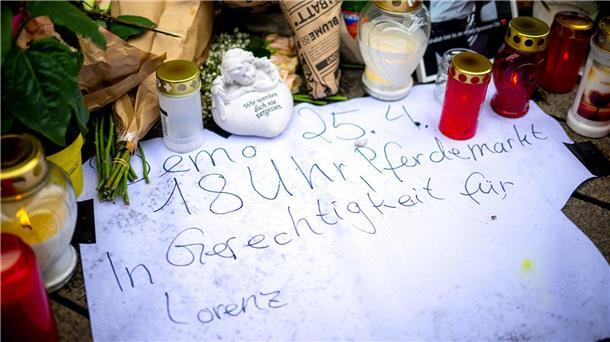 Wir werden
dich nie
vergessen.
BLUME
emo 25.4.
18 Uhr, Pferdemarkt
In Gerechtigkeit für
Lorenz